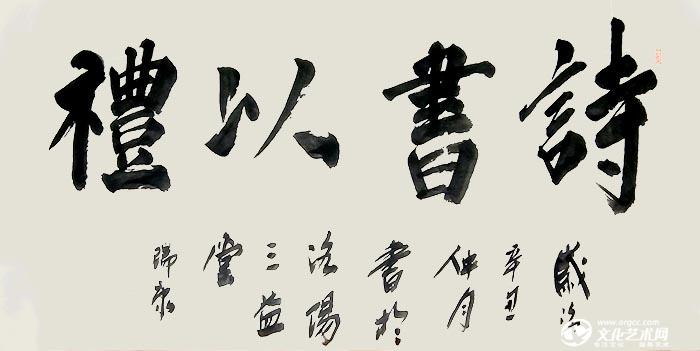 詩書以禮
歲次
辛丑
仲月
書於
洛陽
三益
堂
瑞
www.orgcc.com
文化艺术网